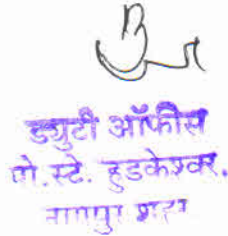 ड्युटी ऑफीस
पो.स्टे. हुडकेश्वर.
नागपुर शहर